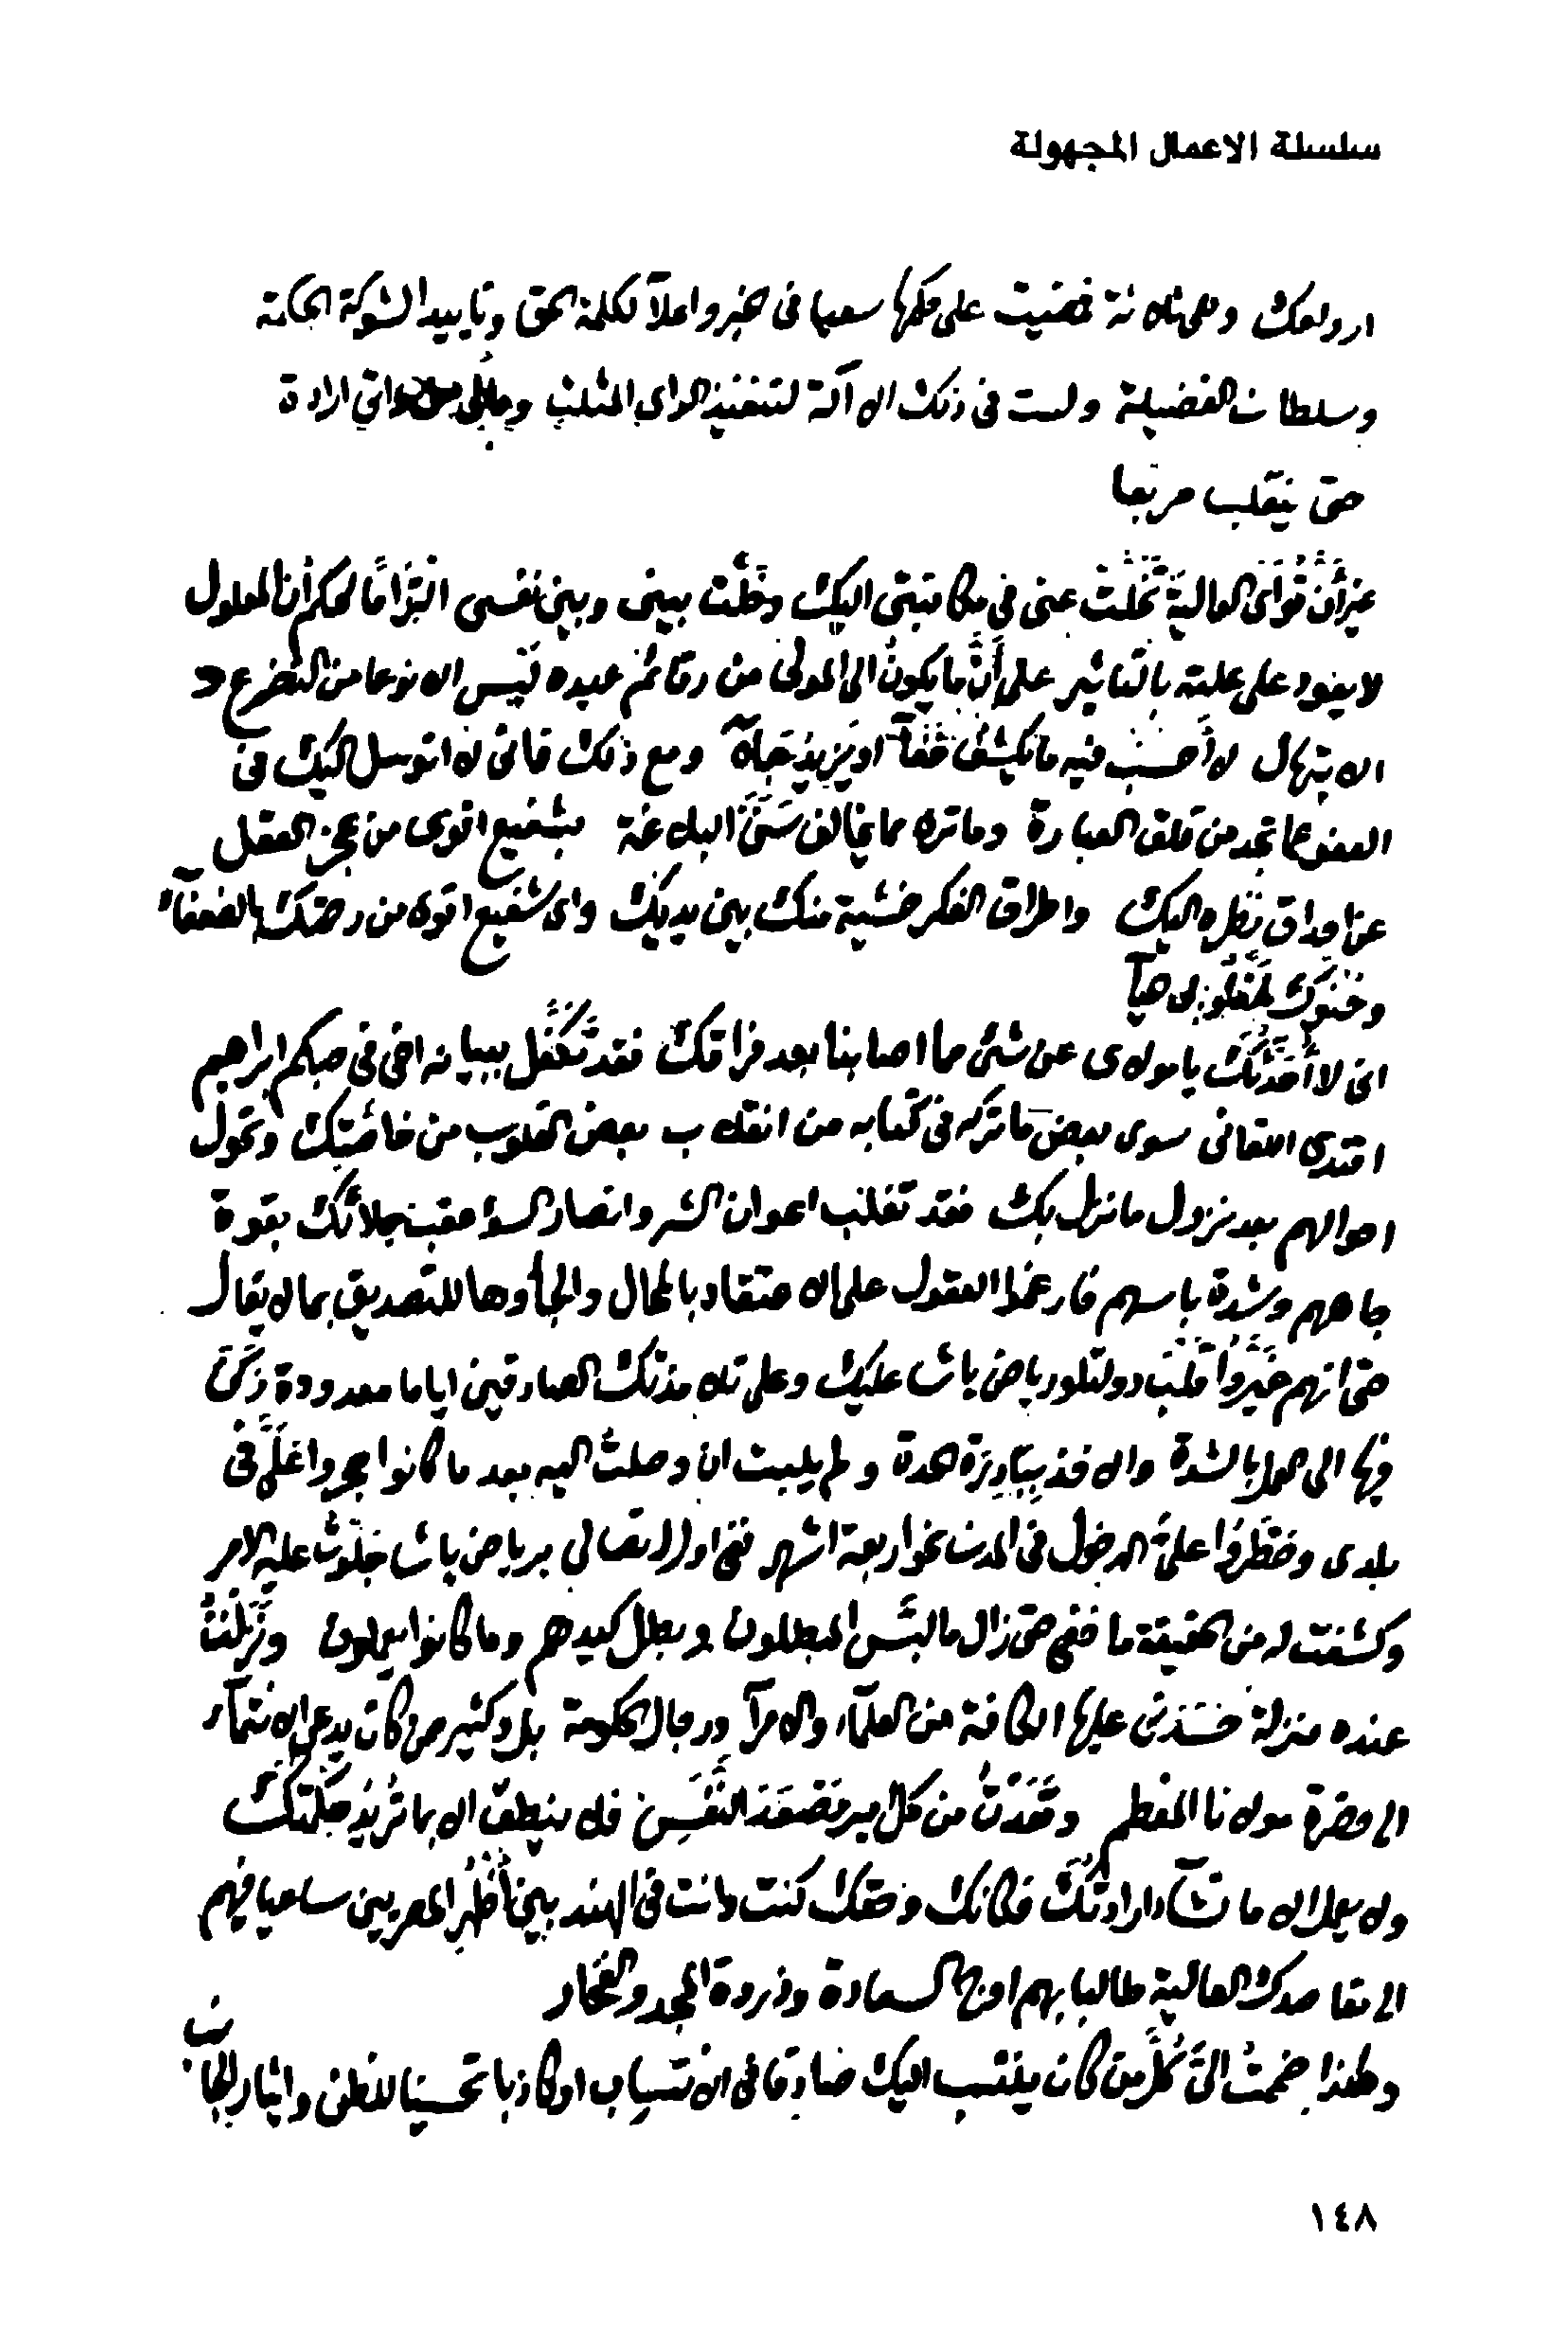 سلسلة الاعمال المجهولة
ارواحك وهى ثلاثة قضيت على حكمها سعيا فى الخير واعلاآ لكلمة الحق وتاييدا لشوكة الحكمة
وسلطان الفضيلة ولست فى ذلك الا آلة لتنفيذ الراى المثلث ومالى من ذاتى ارادة
حتى ينقلب مربعا
غير أن قواى العالية تخلت عنى فى مكاتبتى اليك وخلت بينى وبين نفسى التزاما لحكم أن المعلول
لا يعود على علته بالتاثير على أن ما يكون الى المولى من رقائم عبيده ليس الا نوعا من التضرع و
الابتهال لا أحسب فيه ما يكشف خفآ او يزيد جلاآ ومع ذلك فانى لا اتوسل اليك فى
العفو عما تجد من قلق العبارة وما تراه مما يخالف سنن البلاغة بشفيع اقوى من عجز العقل
عن احداق نظره اليك واطراق الفكر خشية منك بين يديك واى شفيع اقوى من رحمتك بالضعفآء
وحنوك لمغلوبى حيآ
انى لا أحدثك يا مولاى عن شئ مما اصابنا بعد فراقك فقد تكفل ببيانه اخى فى حبكم ابراهيم
افندى اللقانى سوى بعض ما تركه فى كتابه من انقلاب بعض القلوب من خاصتك وتحول
احوالهم بعد نزول ما نزل بك فقد تغلب اعوان الشر وانصار السؤ عقب جلائك بقوة
جاههم وشدة باسهم فارغموا العقول على الاعتقاد بالمحال والجأوها للتصديق بما لا يقال
حتى انهم غيروا قلب دولتلو رياض باشا عليك وعلى تلامذتك الصادقين اياما معدودة ركن
فيها الى العمل بالشدة والاخذ ببادرة الحدة ولم يلبث ان وصلت اليه بعد ما كانوا حجروا على فى
بلدى وحظروا على الدخول فى المدن نحو اربعة اشهر ففى اول اتصالى برياض باشا جلوت عليه الامر
وكشفت له من الحقيقة ما خفى حتى زال ما لبس المبطلون وبطل كيدهم وما كانوا يعملون ونزلت
عنده منزلة حسدنى عليها الكافة من العلمآء والامرآ ورجال الحكومة بل وكثير من كان يدعى الانتمآء
الى حضرة مولانا المعظم
ولا يعمل الا ما تشآء ارادتك فكانك وحقك كنت وانت فى الهند بين أظهر المصريين ساعيا فيهم
الى مقاصدك العالية طالبا بهم اوج السعادة وذروة المجد والفخار
ولهذا ضممت الى كل من كان ينتسب اليك صادقا فى الانتساب او كاذبا تحسينا للظن وايثارا لجانب
١٤٨